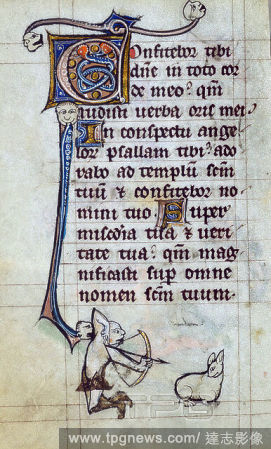 Confitebor tibi
dñe in toto cor
de meo: qm̃
audisti uerba oris mei
In conspectu ange
lor psallam tibi: ado
rabo ad templũ scm̃
tuũ & confitebor no
mini tuo Super
mis̃cdia tua & ueri
tate tua: qm̃ mag
nificasti sup omne
nomen scm̃ tuum.
www.tpgnews.com/ 達志影像